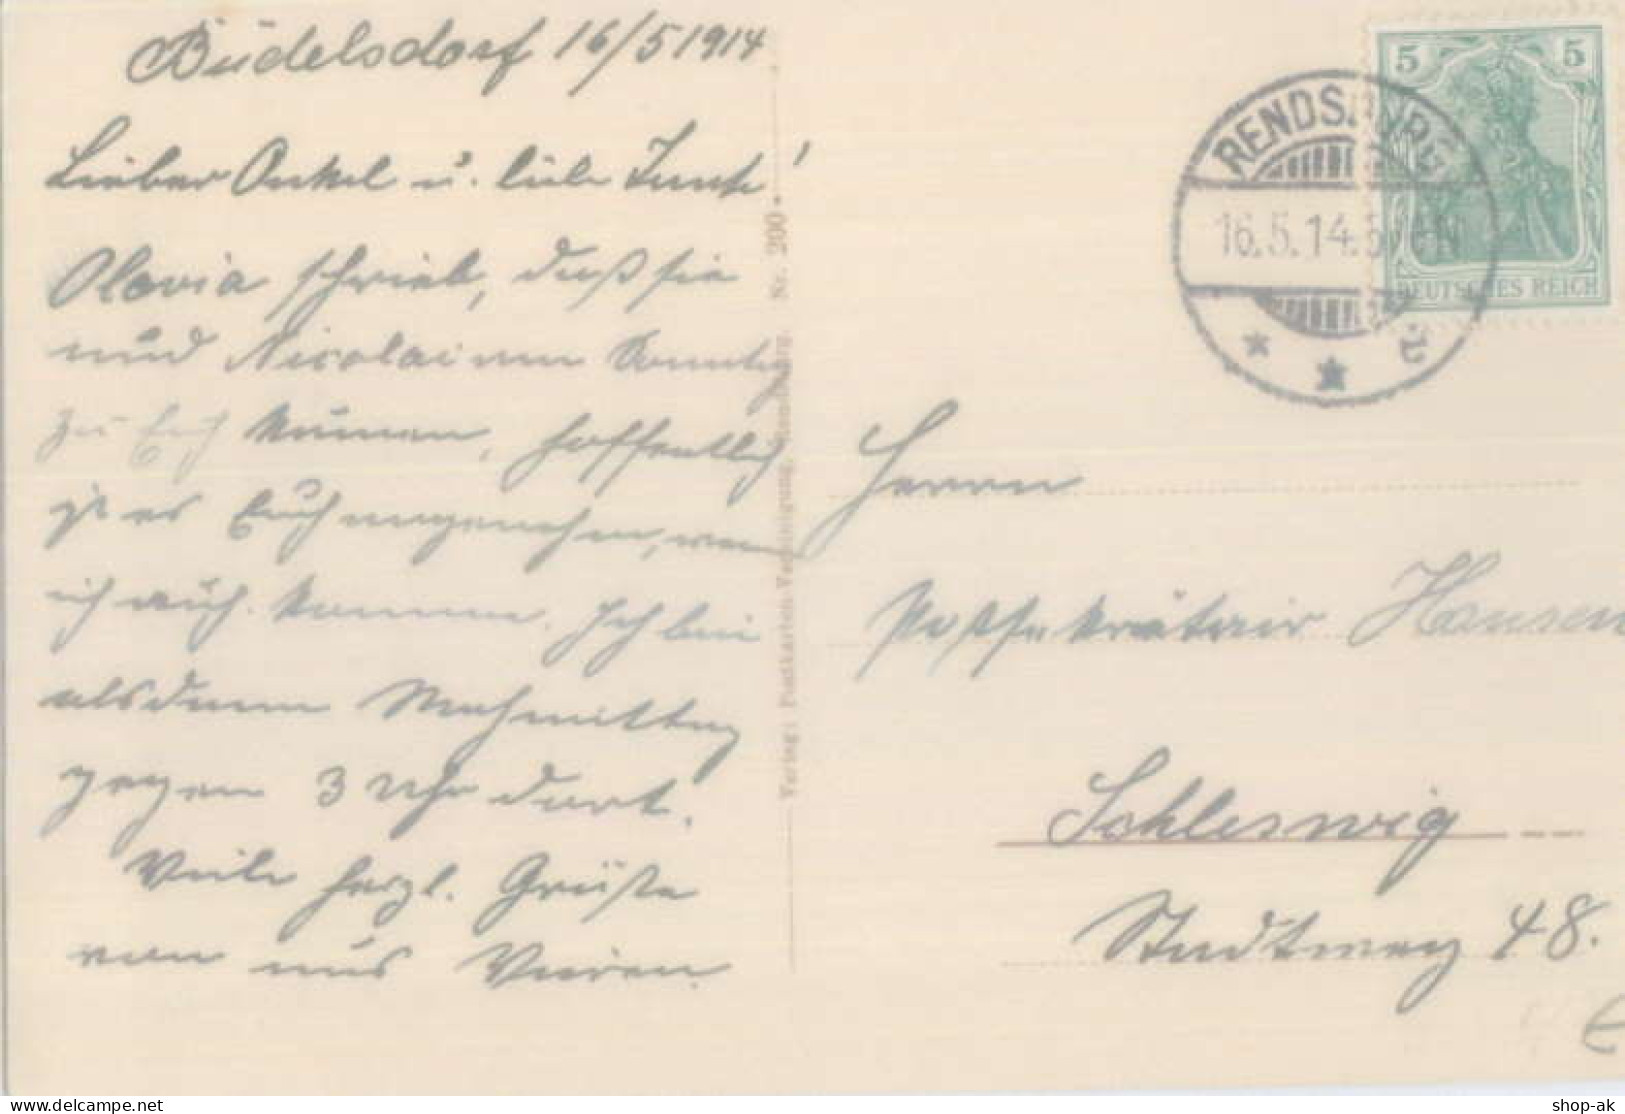 Büdelsdorf 16/5 1914
Lieber Onkel u. liebe Tante!
schrieb, daß sie
und Nicolai am Sonntag
zu Euch kämen, hoffentlich
ist es Euch angenehm, wenn
ich auch komme. Ich bin
alsdann Nachmittag
gegen 3 Uhr dort.
Viele herzl. Grüße
von uns Vieren.
Verlag: Postkarten-Vereinigung, Rendsburg. Nr. 200
5 5
DEUTSCHES REICH
RENDSBURG
16.5.14.5-6N
* * b
Herrn
Postsekretair Hansen
Schleswig
Stadtweg 48.
shop-ak